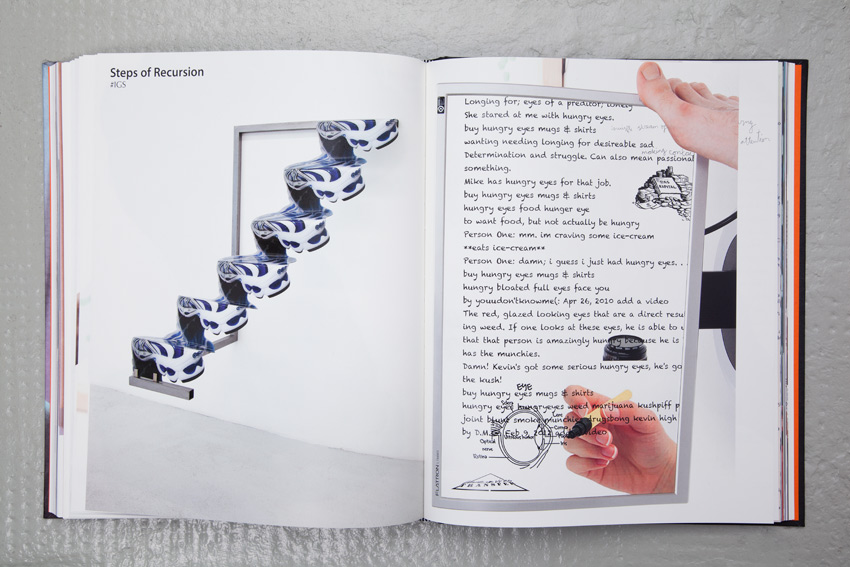 Steps of Recursion
#IGS
Longing for; eyes of a preditor; lonely
She stared at me with hungry eyes.
buy hungry eyes mugs & shirts
wanting needing longing for desireable sad
Determination and struggle. Can also mean passional
something.
Mike has hungry eyes for that job.
buy hungry eyes mugs & shirts
hungry eyes food hunger eye
to want food, but not actually be hungry
Person One: mm. im craving some ice-cream
**eats ice-cream**
Person One: damn; i guess i just had hungry eyes. . .
buy hungry eyes mugs & shirts
hungry bloated full eyes face you
by youudon'tknowme(: Apr 26, 2010 add a video
The red, glazed looking eyes that are a direct resu
ing weed. If one looks at these eyes, he is able to
that that person is amazingly hungry because he is
has the munchies.
Damn! Kevin's got some serious hungry eyes, he's go
the kush!
buy hungry eyes mugs & shirts
hungry eyes hungryeyes weed marijuana kushpiff p
joint blunt smoke munchies drugsbong kevin high
by D.M. Feb 9, 2012 add a video
EYE
Lens
Optical
nerve
Retina
FLATRON